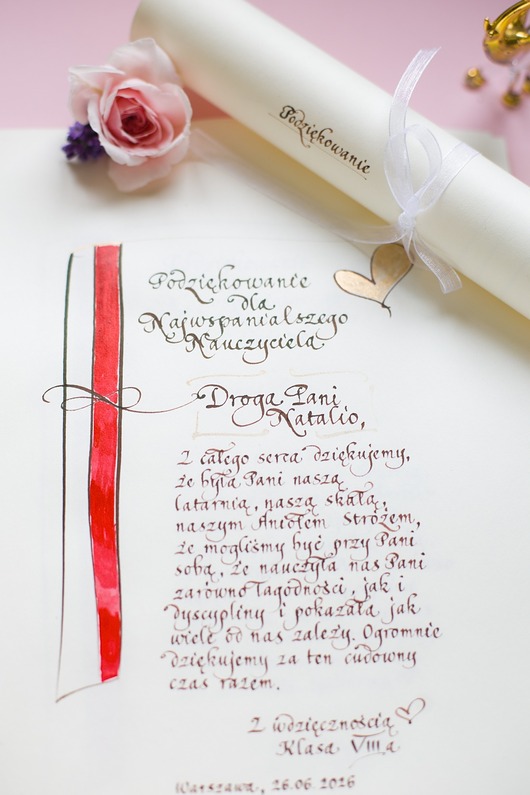 Podziękowanie
Podziękowanie
dla
Najwspanialszego
Nauczyciela
Droga Pani
Natalio,
Z całego serca dziękujemy,
że była Pani naszą
latarnią, naszą skałą,
naszym Aniołem Stróżem,
że mogliśmy być przy Pani
sobą, że nauczyła nas Pani
zarówno łagodności, jak i
dyscypliny i pokazała jak
wiele od nas zależy. Ogromnie
dziękujemy za ten cudowny
czas razem.
Z wdzięcznością
Klasa VIII a
Warszawa, 26.06.2026